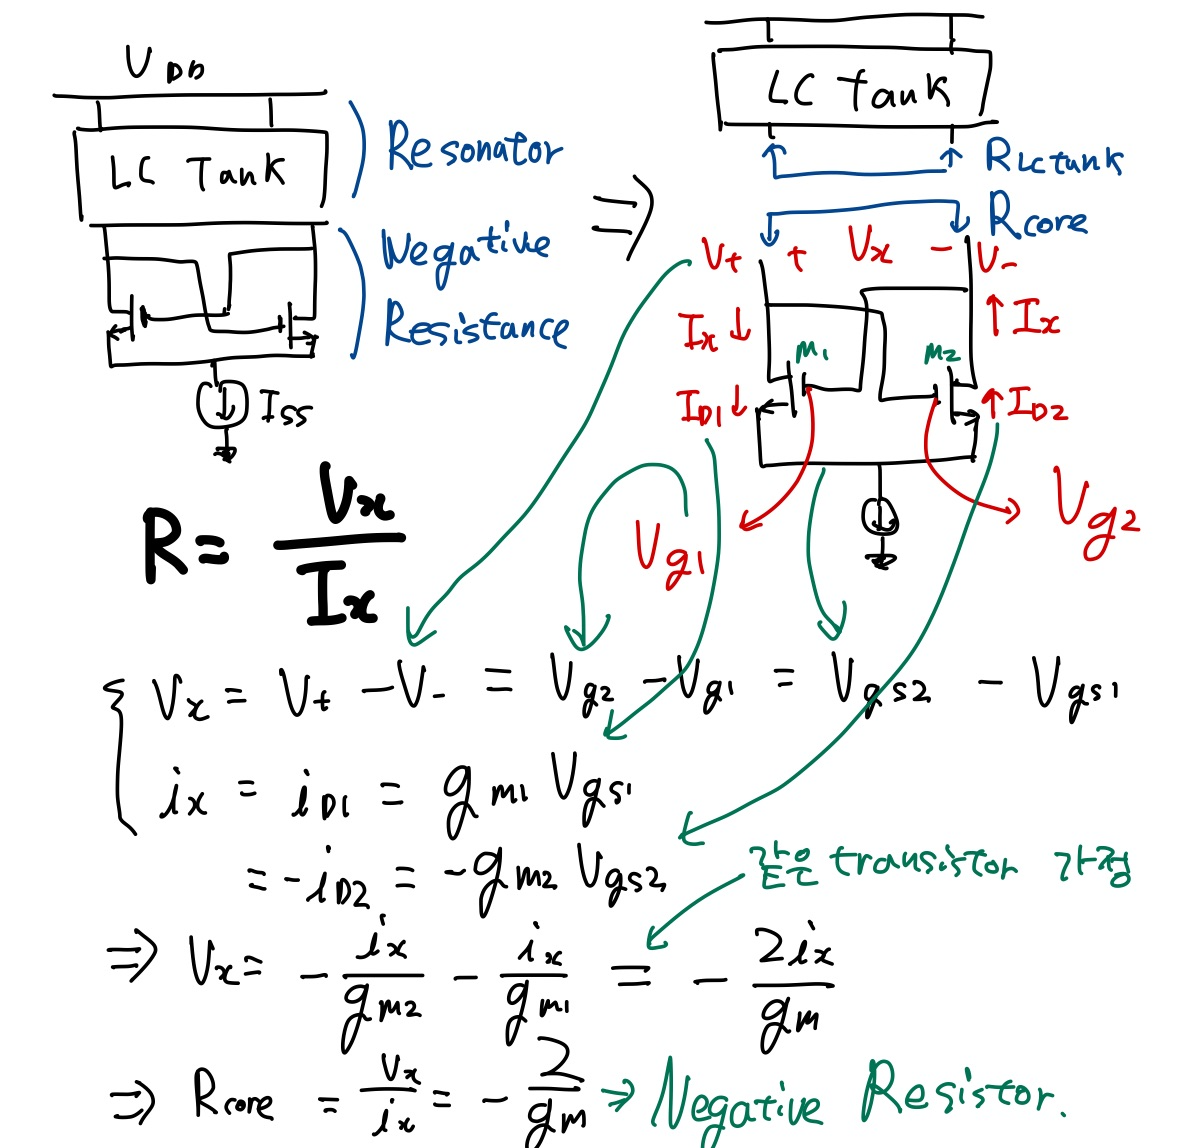 V_DD
LC Tank
Resonator
Negative
Resistance
I_SS
⇒
LC Tank
R_LC tank
R_core
V+ + Vx - V-
Ix ↓ ↑ Ix
M1 M2
I_D1 ↓ ↑ I_D2
V_g1 V_g2
R = Vx / Ix
{ Vx = V+ - V- = V_g2 - V_g1 = V_gs2 - V_gs1
ix = i_D1 = g_m1 V_gs1
= -i_D2 = -g_m2 V_gs2
같은 transistor 가정
⇒ Vx = - ix / g_m2 - ix / g_m1 = - 2ix / gm
⇒ R_core = Vx / ix = - 2 / gm → Negative Resistor.